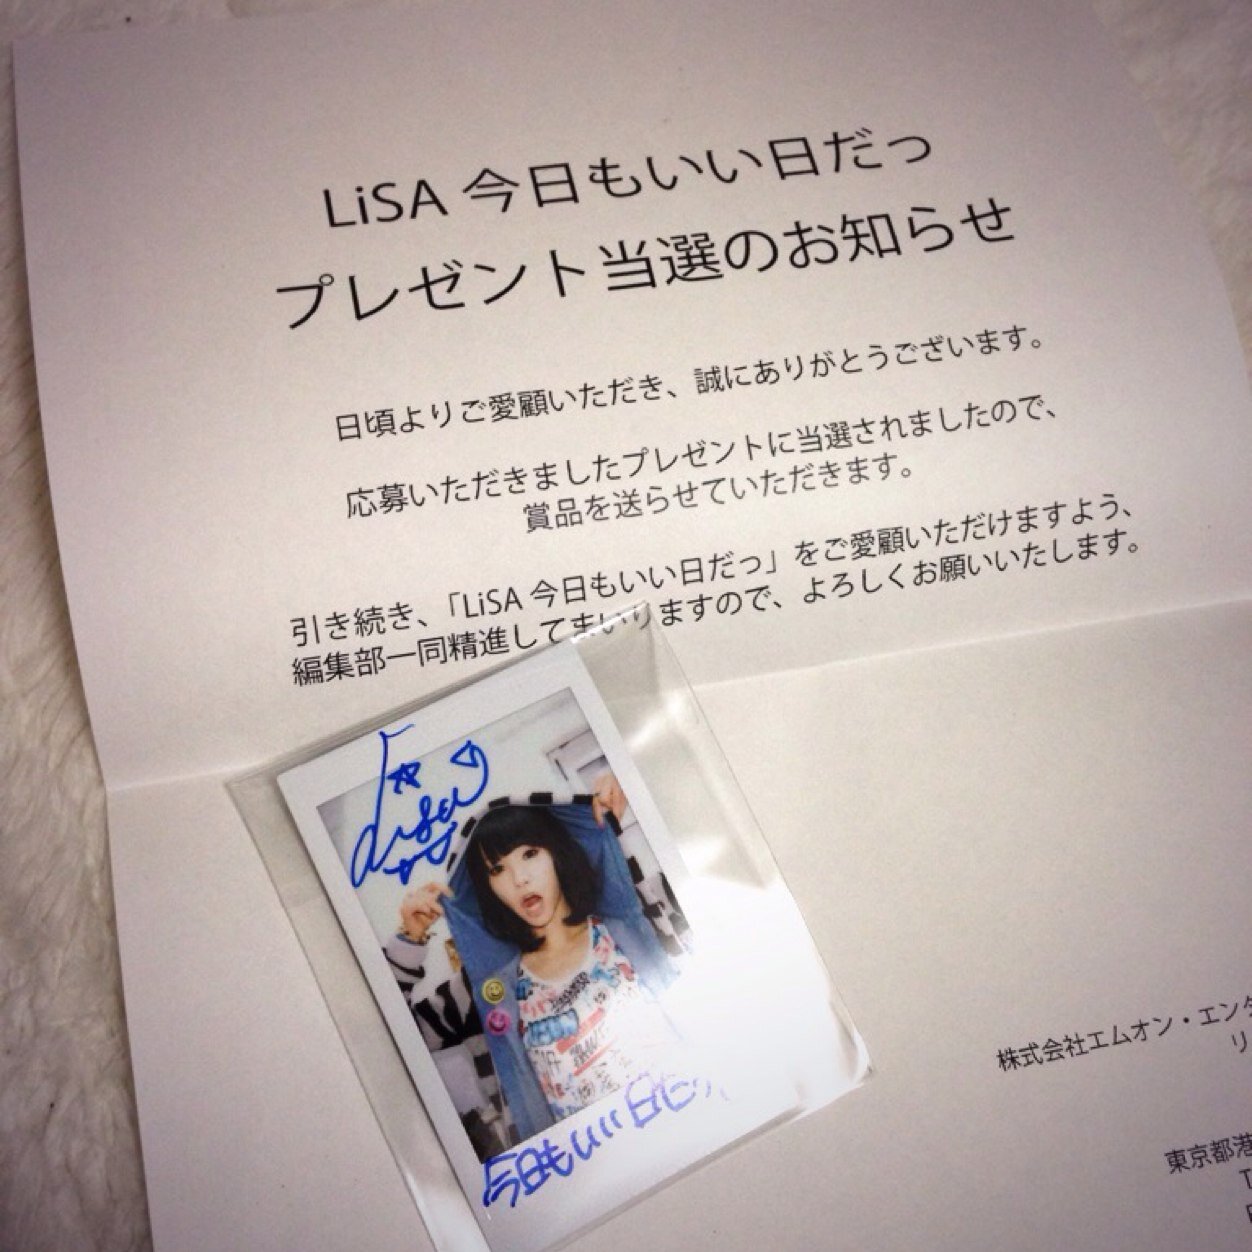 LiSA 今日もいい日だっ
プレゼント当選のお知らせ
日頃よりご愛顧いただき、誠にありがとうございます。
応募いただきましたプレゼントに当選されましたので、
賞品を送らせていただきます。
引き続き、「LiSA 今日もいい日だっ」をご愛顧いただけますよう、
編集部一同精進してまいりますので、よろしくお願いいたします。
LiSA
今日もいい日だっ
株式会社エムオン・エンタ
リ
東京都港
T